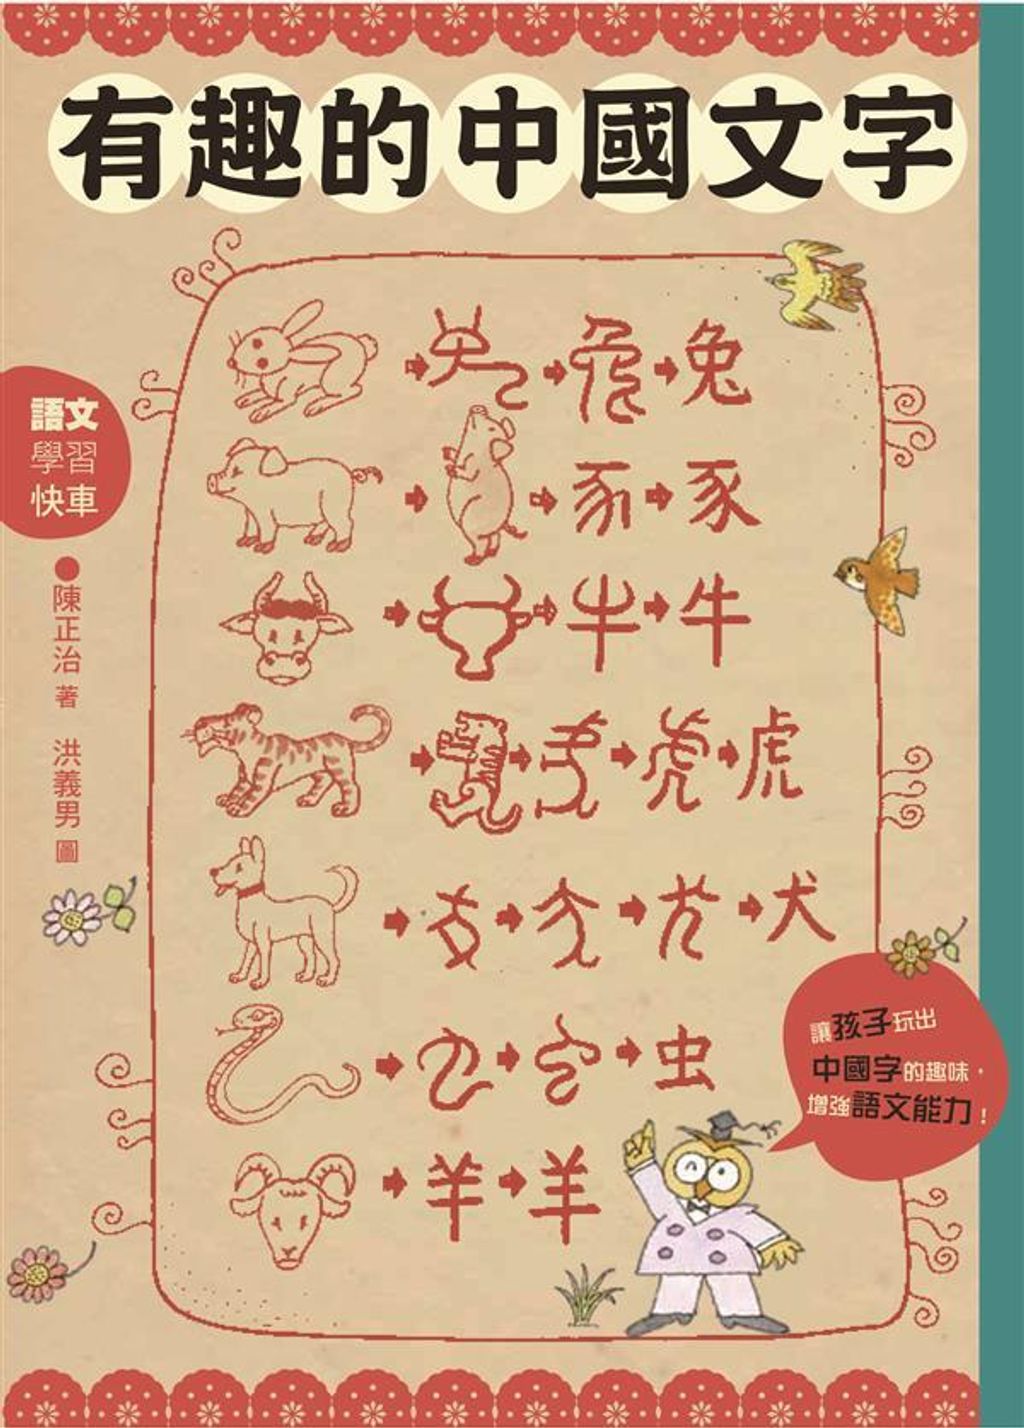 有趣的中國文字
語文
學習
快車
陳正治 著 洪義男 圖
兔
豕
牛
虎
犬
虫
羊 羊
讓孩子玩出
中國字的趣味，
增強語文能力！